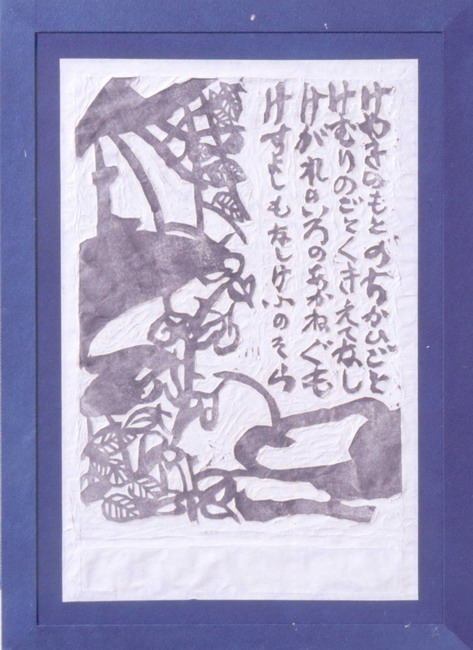 けやきのもとのちかひごと
けむりのごとくきえてなし
けがれのいろのあかねぐも
けすよしもなしけふのそら